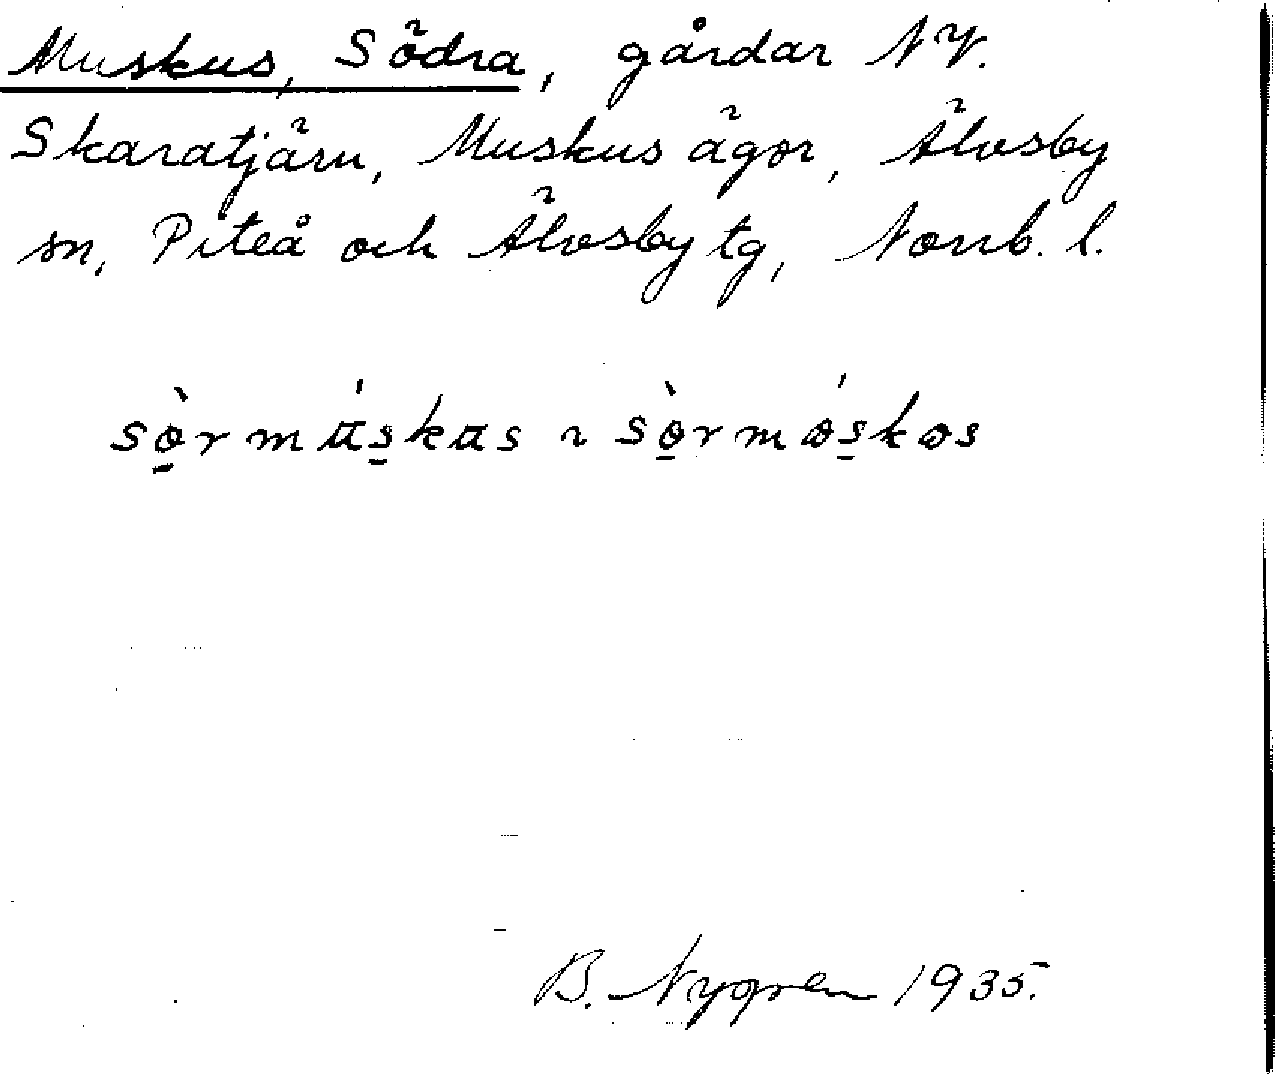 Muskus, Södra, gårdar NV.
Skaratjärn, Muskus ägor, Älvsby
sn, Piteå och Älvsby tg, Norrb. l.
sö̀rmúskus ~ sö̀rmóskos
B. Nygren 1935.